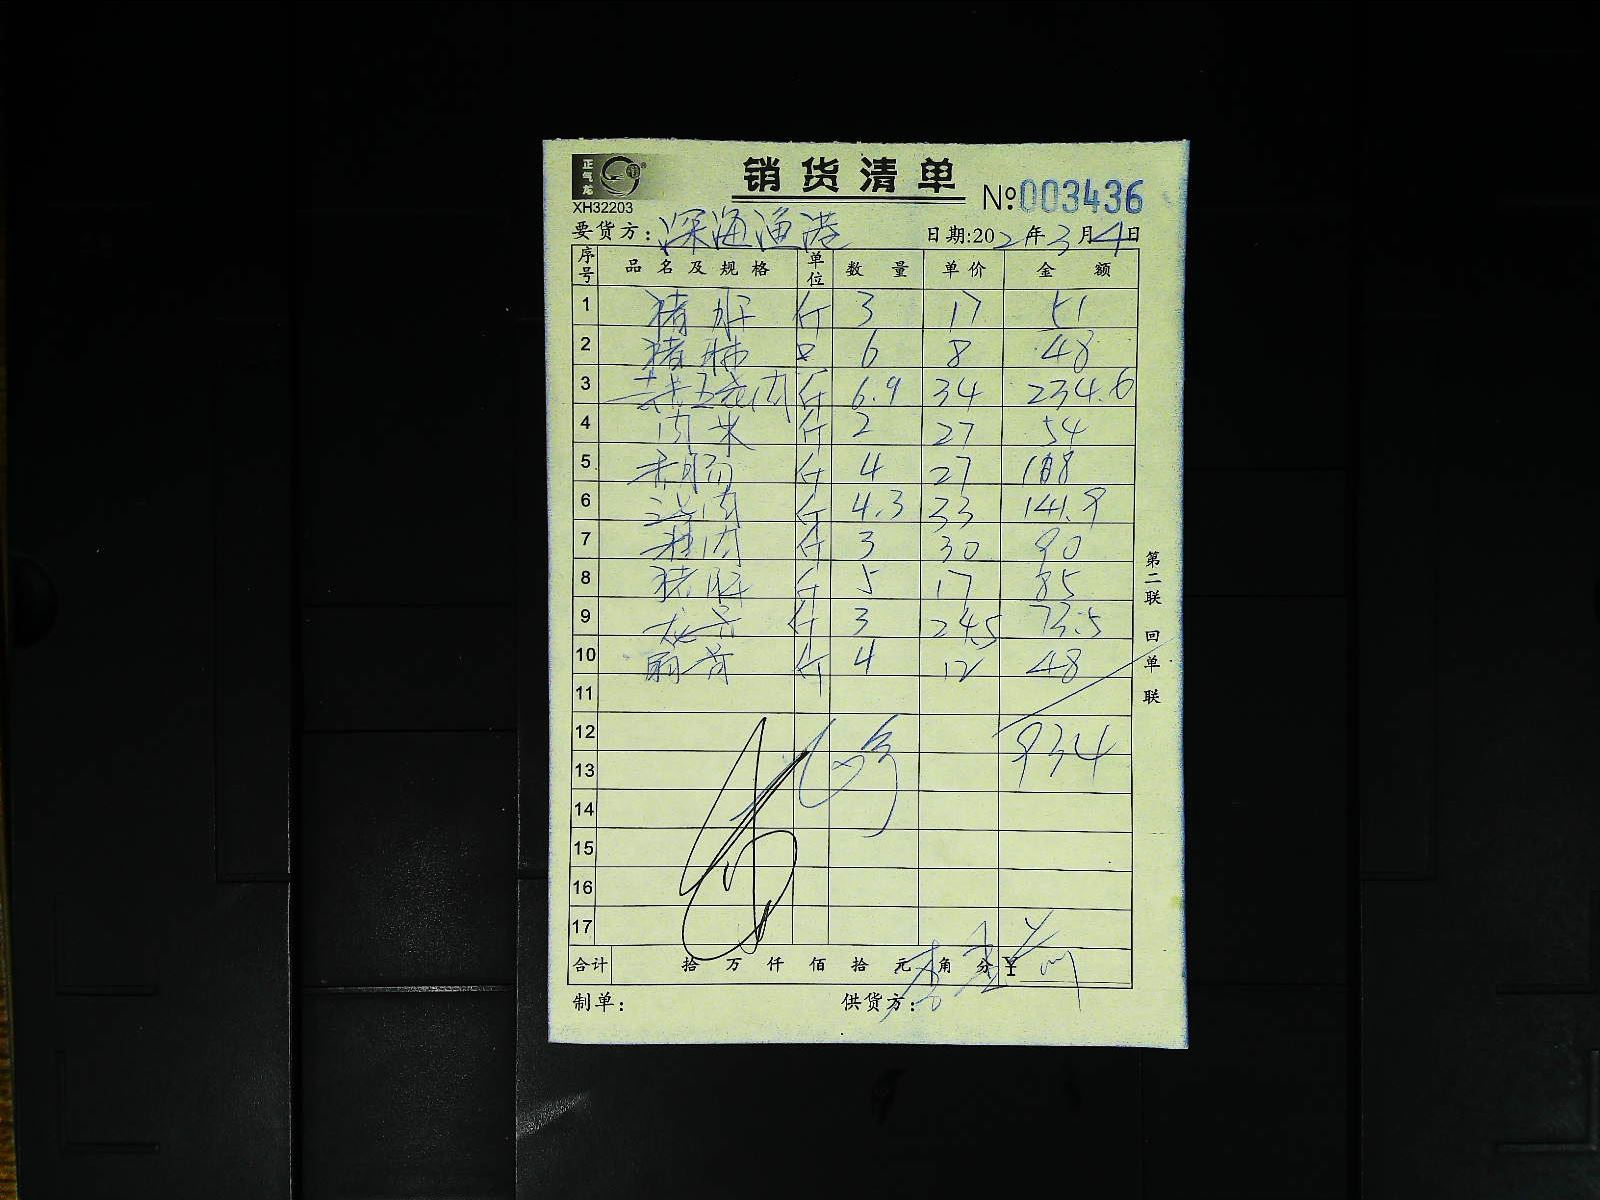 正气龙
销货清单
XH32203
№003436
要货方:深海渔港 日期:202年3月4日
序号 品名及规格 单位 数量 单价 金额
1 猪肝 斤 3 17 51
2 猪肺 只 6 8 48
3 五花肉 斤 6.9 34 234.6
4 肉米 斤 2 27 54
5 香肠 斤 4 27 108
6 肉 斤 4.3 33 141.9
7 肉 斤 3 30 90
8 猪肝 斤 5 17 85
9 龙骨 斤 3 24.5 73.5
10 扇骨 斤 4 12 48
11
12 934
13
14
15
16
17
合计 拾 万 仟 佰 拾 元 角 分 ¥
制单: 供货方:
第二联 回单联